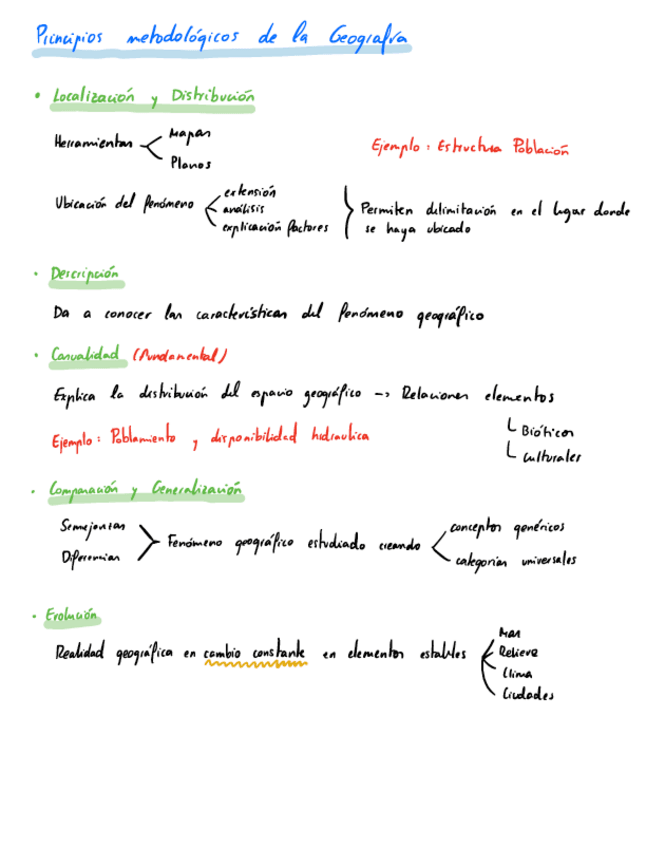 Principios metodológicos de la Geografía
• Localización y Distribución
Herramientas
Mapas
Planos
Ejemplo: Estructura Población
Ubicación del fenómeno
extensión
análisis
explicación factores
Permiten delimitación en el lugar donde
se haya ubicado
• Descripción
Da a conocer las características del fenómeno geográfico
• Casualidad (fundamental)
Explica la distribución del espacio geográfico -> Relaciones elementos
Bióticos
culturales
Ejemplo: Poblamiento y disponibilidad hidraulica
• Comparación y Generalización
Semejanzas
Diferencias
Fenómeno geográfico estudiado creando
conceptos genéricos
categorías universales
• Evolución
Realidad geográfica en cambio constante en elementos estables
Mar
Relieve
Clima
Ciudades